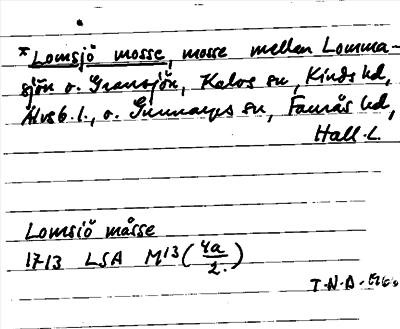 *Lomsjö mosse, mosse mellan Lomma-
sjön o. Gransjön, Kalvs sn, Kinds hd,
Älvsb. l., o. Gunnarps sn, Faurås hd,
Hall. l.
Lomsiö måsse
1713 LSA M13 (4a/2)
T.N.A.